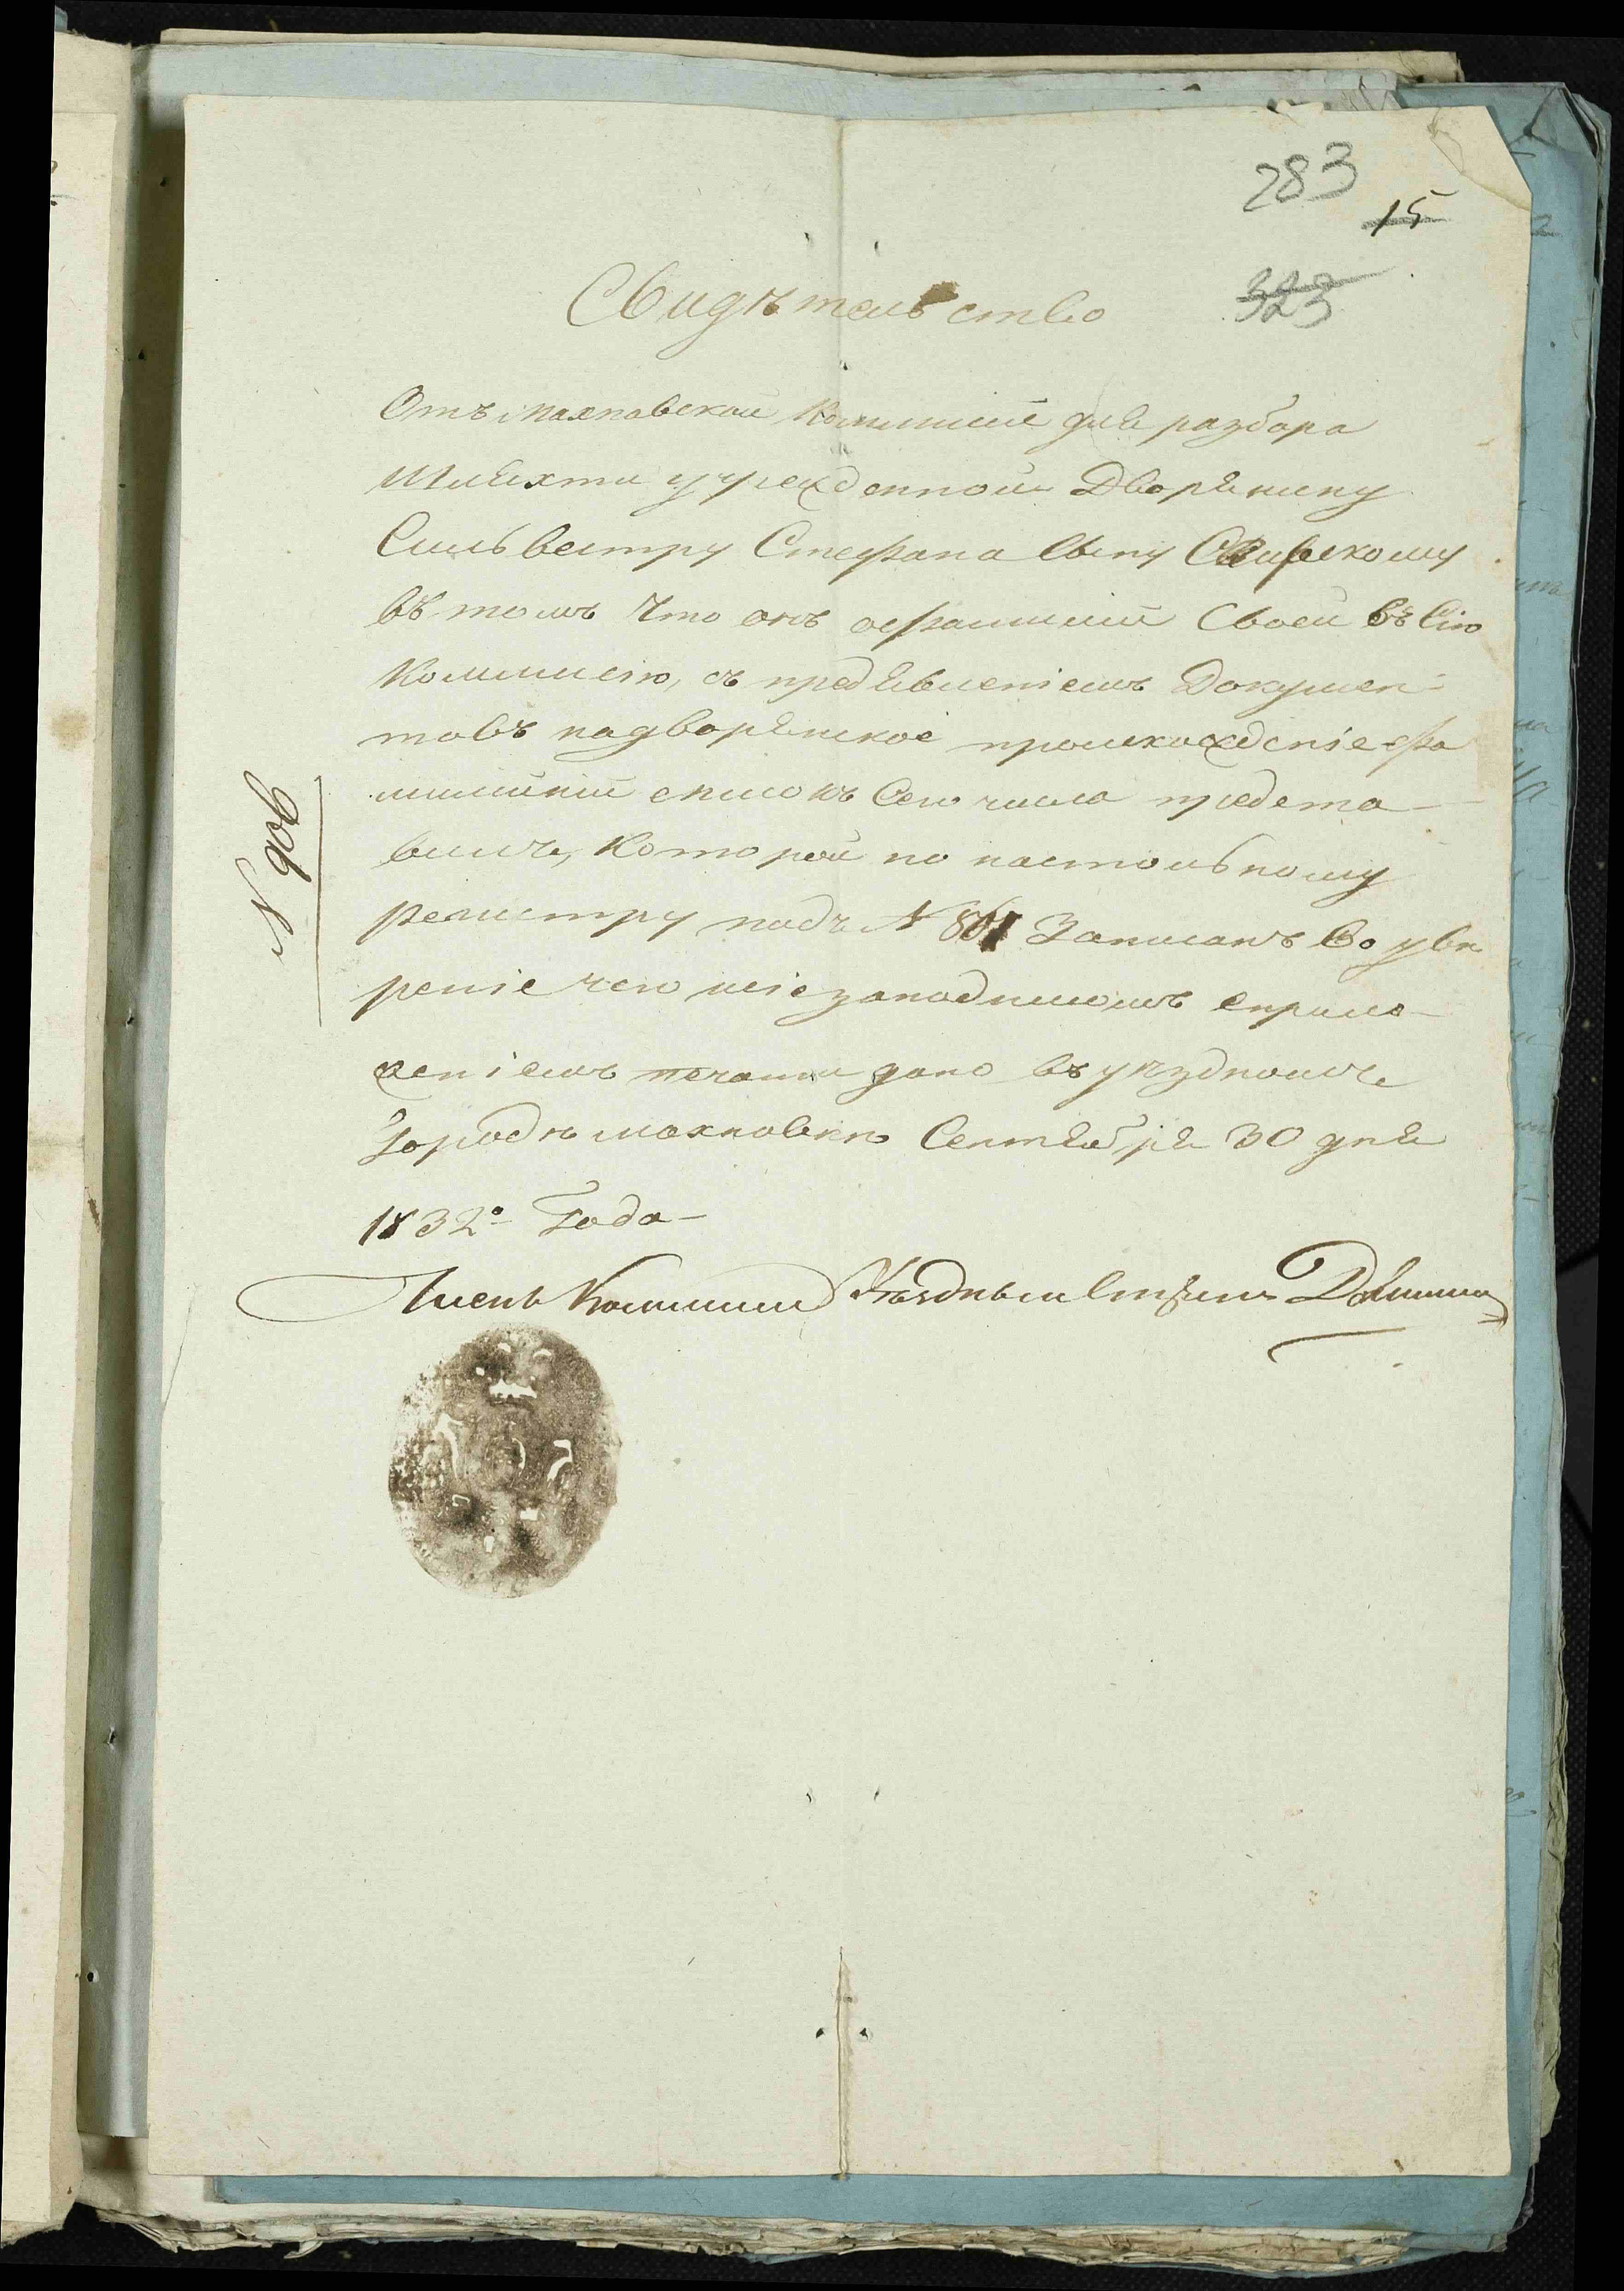 283
15
323
Свидѣтельство
Отъ махновской Коммисіи для разбора
Шляхти учрежденной Дворянину
Сильвестру Стефана Сыну Свирскому
въ томъ что онъ офамиліи Своей въ Сію
Коммисію, съ предъявленіемъ Докумен-
товъ надворянское происхожденіе фа
милійний списокъ Сего числа предста-
вилъ, Которой по настольному
регистру подъ N 801 Записанъ Во увѣ
реніе чего сіе заподписомъ сприло-
женіемъ печати дано въ уѣздномъ
Городѣ махновкѣ Сентября 30 дня
1832го Года-
Членъ Коммисіи Уѣздный
N 906